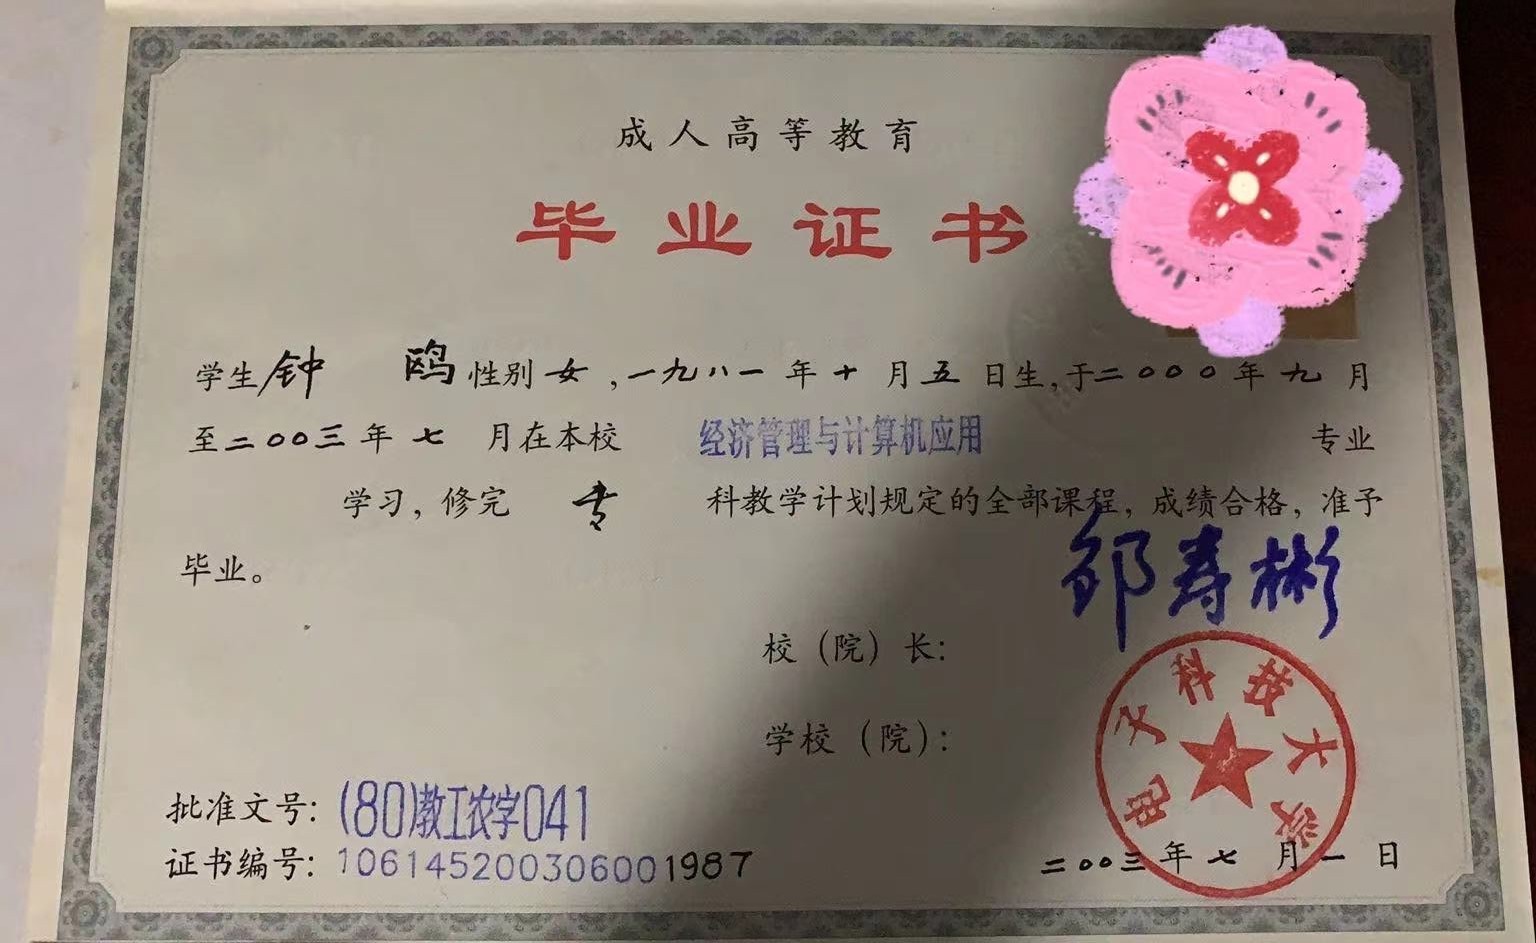 成人高等教育
毕业证书
学生钟鸥性别女,一九八一年十月五日生,于二000年九月
至二00三年七月在本校 经济管理与计算机应用 专业
学习,修完 专 科教学计划规定的全部课程,成绩合格,准予
毕业。
邹寿彬
校(院)长:
学校(院):
电子科技大学
批准文号:(80)教工农字041
证书编号:106145200306001987
二00三年七月一日